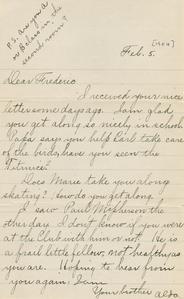 P.S. are you a
or B class in the
second room?
[1904]
Feb. 5.
Dear Frederic
I received your nice
letter some days ago. I am glad
you get along so nicely in school.
Papa says you help Earl take care
of the birds, have you seen the
Does Marie take you along
skating? How do you get along?
I saw Paul McPherson the
other day. I don't know if you were
at the Club with him or not. He is
a frail little fellow, not healthy as
you are. Hoping to hear from
you again, I am
Your brother